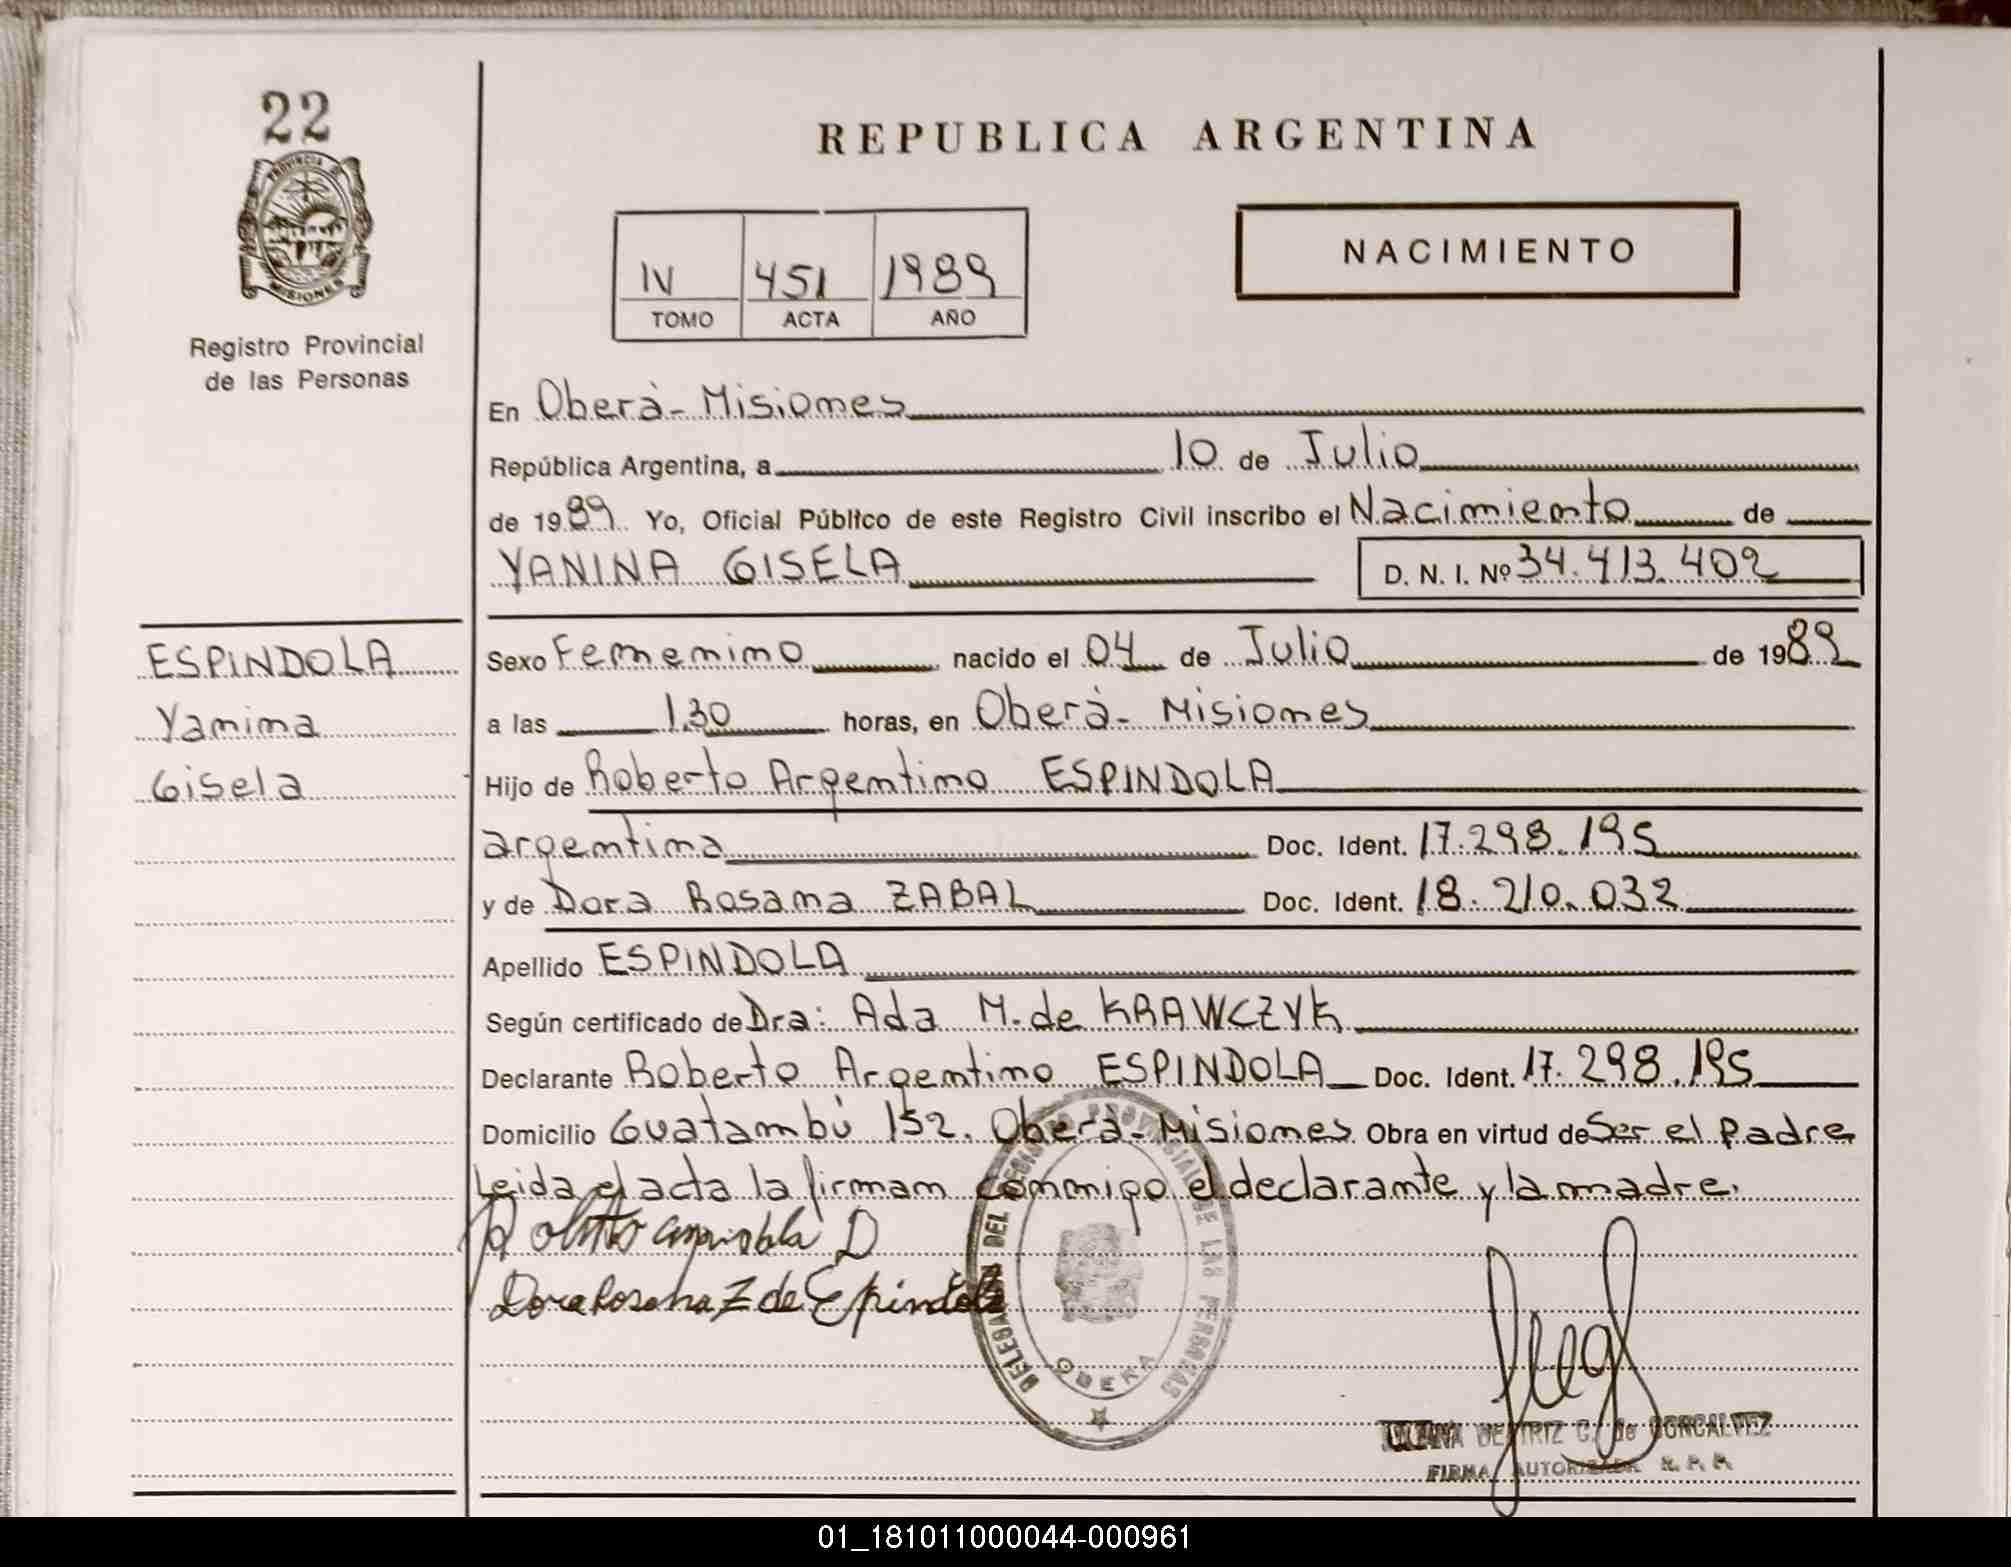 22
PROVINCIA DE
MISIONES
Registro Provincial
de las Personas
REPUBLICA ARGENTINA
NACIMIENTO
IV 451 1989
TOMO ACTA AÑO
En Oberà - Misiones
República Argentina, a 10 de Julio
de 1989 Yo, Oficial Público de este Registro Civil inscribo el Nacimiento de
YANINA GISELA D. N. I. Nº 34.413.402
ESPINDOLA
Yanina
Gisela
Sexo Femenino nacido el 04 de Julio de 1989
a las 1.30 horas, en Oberà - Misiones
Hijo de Roberto Argentino ESPINDOLA
argentina Doc. Ident. 17.298.195
y de Dora Rosana ZABAL Doc. Ident. 18.210.032
Apellido ESPINDOLA
Según certificado de Dra: Ada M. de KRAWCZYK
Declarante Roberto Argentino ESPINDOLA Doc. Ident. 17.298.195
Domicilio Guatambú 152. Oberà - Misiones Obra en virtud de Ser el padre
Leida el acta la firman conmigo el declarante y la madre.
Dora Rosana Z de Epindola
DELEGACION DEL REGISTRO PROVINCIAL DE LAS PERSONAS
OBERA
BEATRIZ C. de GONCALVEZ
FIRMA AUTORIZADA R. P. P.
01_181011000044-000961